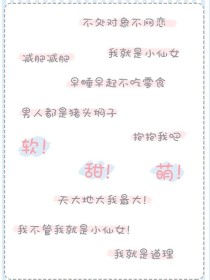 不处对象不网恋
减肥减肥
我就是小仙女
早睡早起不吃零食
男人都是猪头焖子
抱抱我吧
软!
甜!
萌!
天大地大我最大!
我不管我就是小仙女!
我就是道理